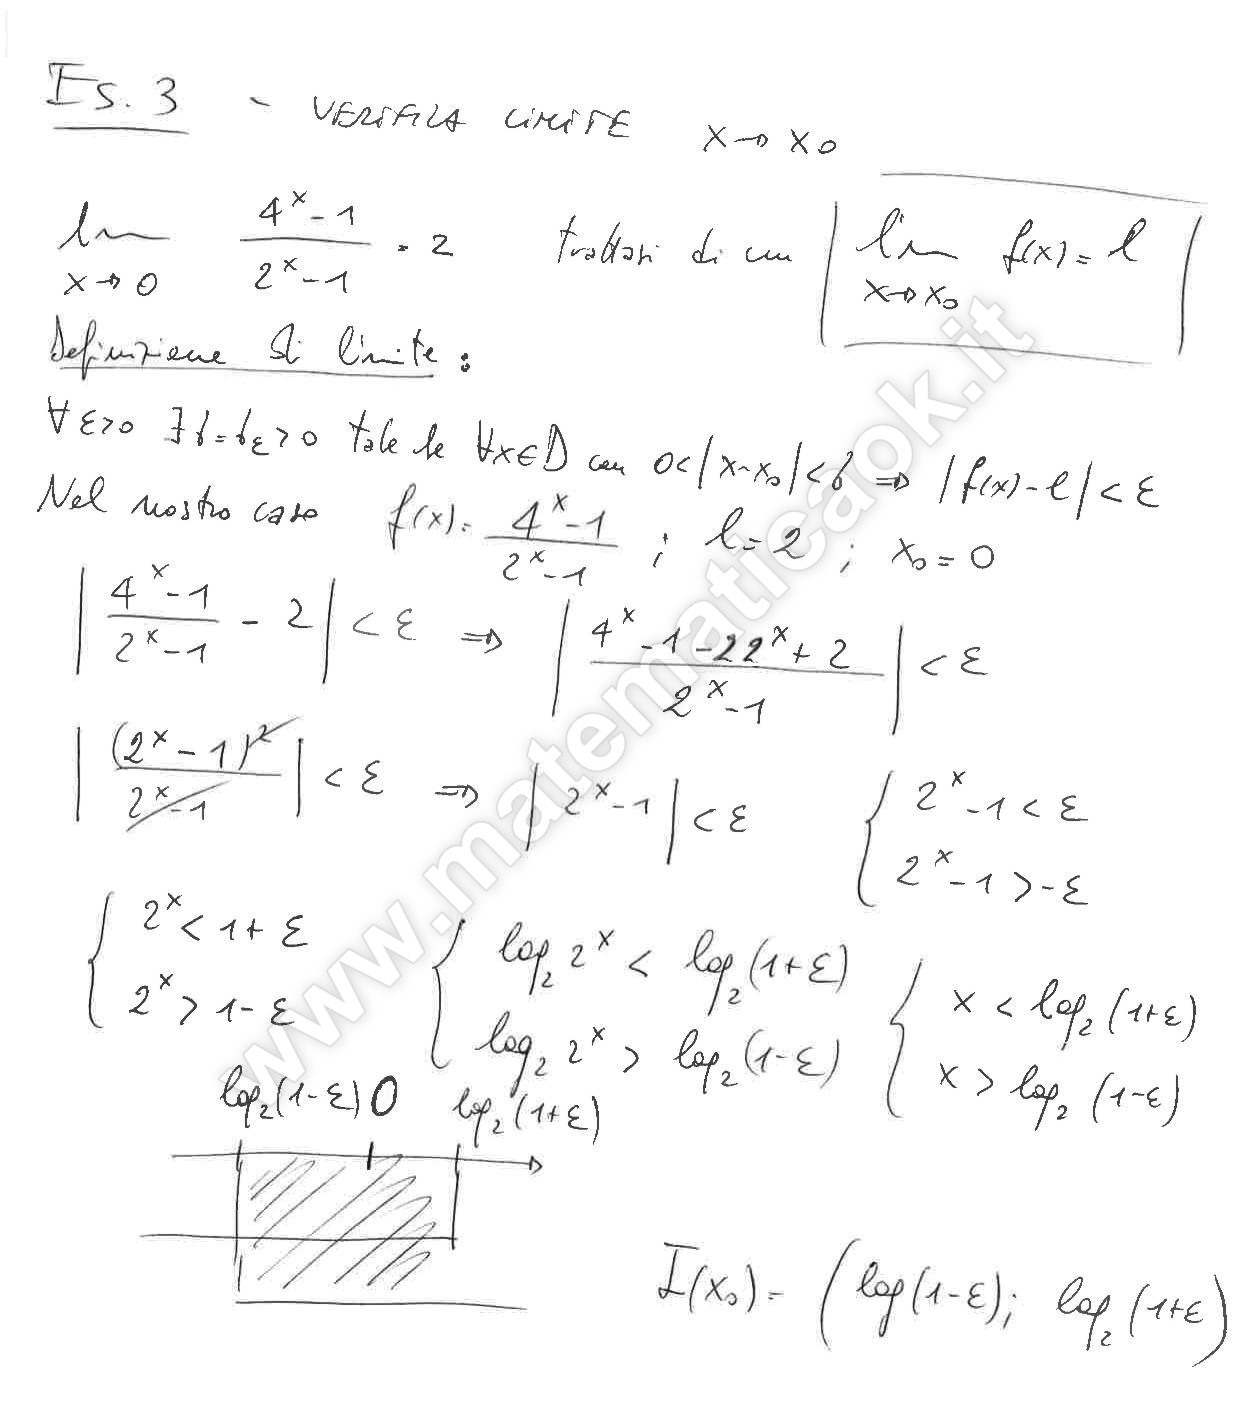 Es. 3 - VERIFICA LIMITE x→x₀
lim x→0 (4ˣ-1)/(2ˣ-1) = 2 trattasi di un | lim x→x₀ f(x) = l |
Definizione di limite:
∀ε>0 ∃δ=δ_ε>0 tale che ∀x∈D con 0<|x-x₀|<δ ⇒ |f(x)-l|<ε
Nel nostro caso f(x)= (4ˣ-1)/(2ˣ-1) ; l=2 ; x₀=0
|(4ˣ-1)/(2ˣ-1) - 2| < ε ⇒ |(4ˣ-1-22ˣ+2)/(2ˣ-1)| < ε
|(2ˣ-1)²/(2ˣ-1)| < ε ⇒ |2ˣ-1| < ε { 2ˣ-1<ε
2ˣ-1>-ε
{ 2ˣ<1+ε { log₂ 2ˣ < log₂(1+ε) { x < log₂(1+ε)
2ˣ>1-ε log₂ 2ˣ > log₂(1-ε) x > log₂(1-ε)
log₂(1-ε) 0 log₂(1+ε)
I(x₀) = (log(1-ε); log₂(1+ε)
www.matematicaok.it